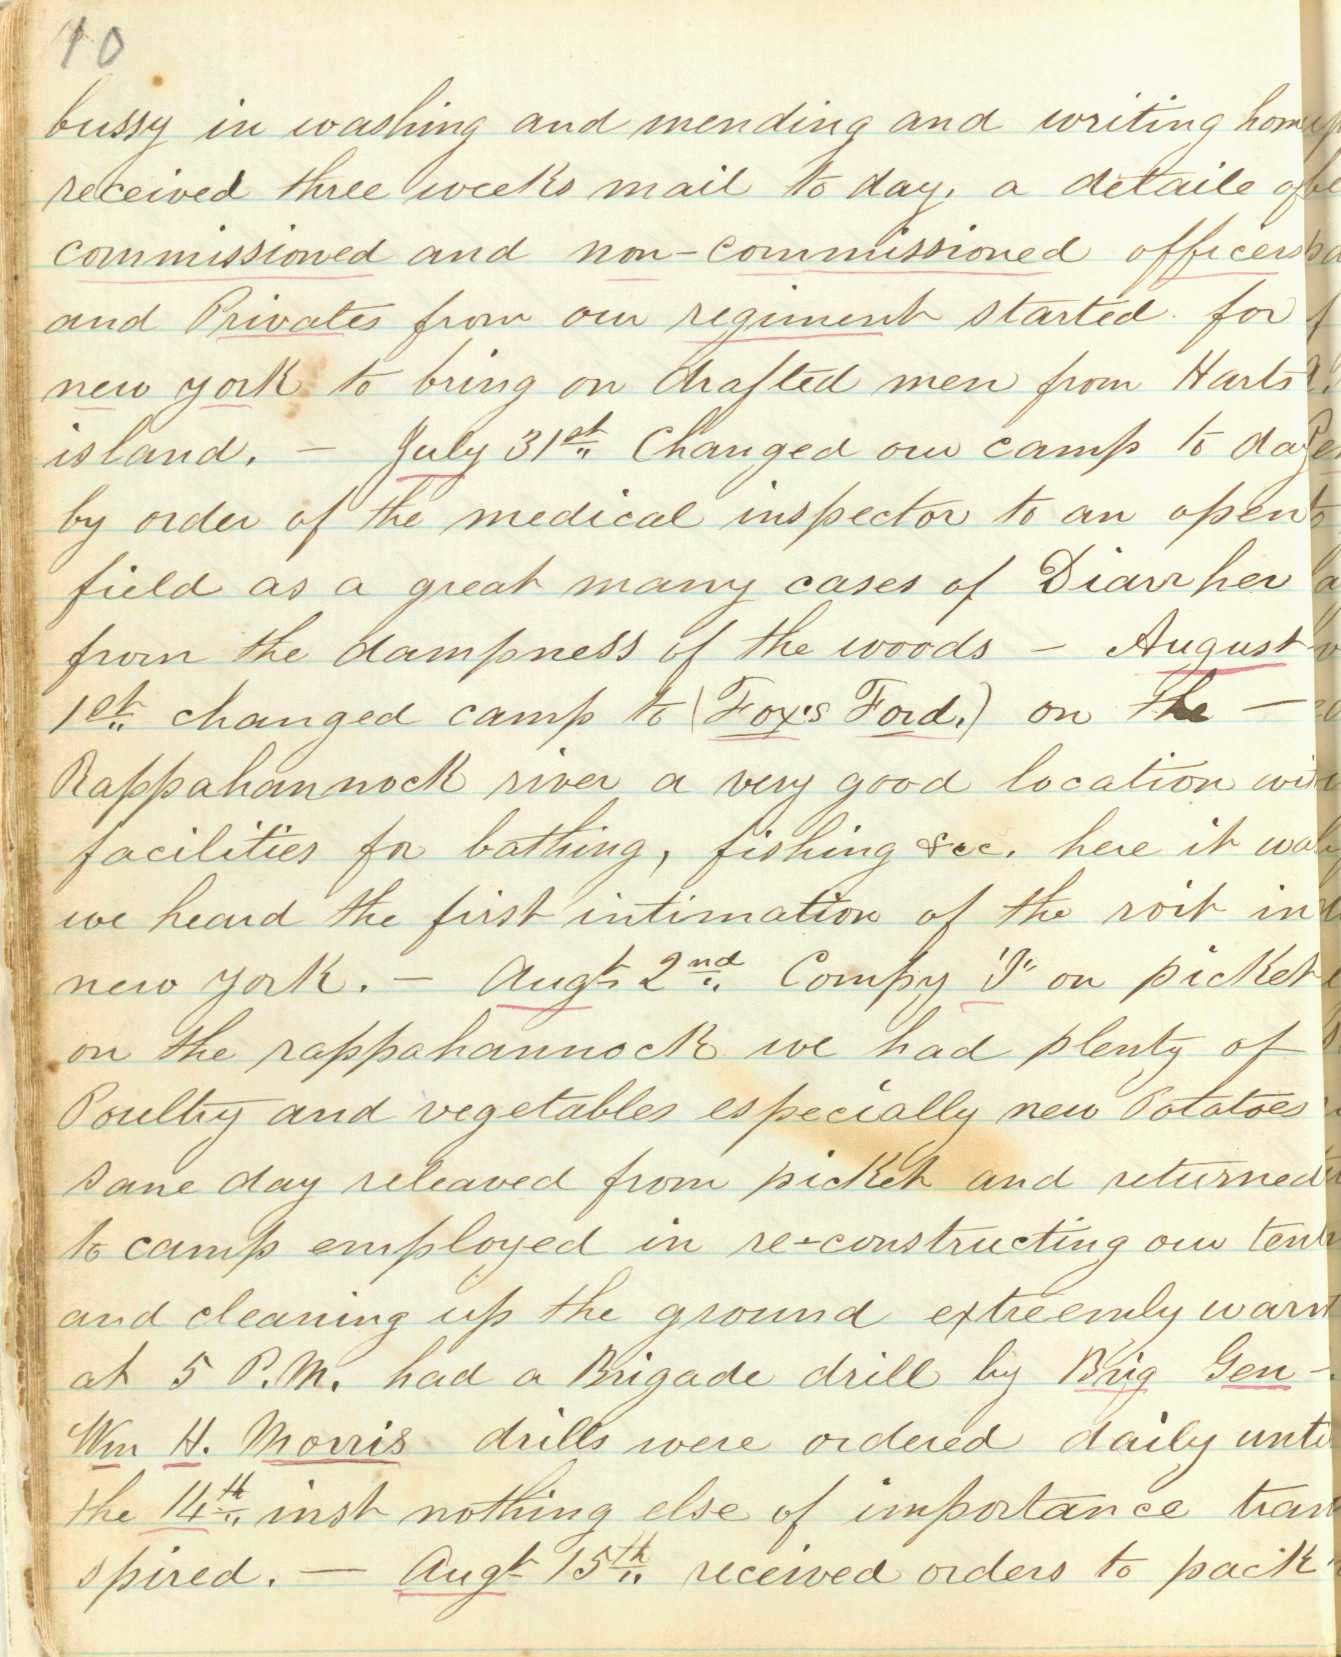 10
bussy in washing and mending and writing home
received three weeks mail to day. a detaile of
commissioned and non-commissioned officers
and Privates from our regiment started for
new york to bring on drafted men from Harts
island. — July 31st Changed our camp to day
by order of the medical inspector to an open
field as a great many cases of Diarrher
from the dampness of the woods — August
1st changed camp to (Fox's Ford.) on the —
Rappahannock river a very good location with
facilities for bathing, fishing &cc. here it was
we heard the first intimation of the roit in
new york. — Augt 2nd Compy "I" on picket
on the rappahannock we had plenty of
Poultry and vegetables especially new Potatoes
sane day releaved from picket and returned
to camp employed in re-constructing our tents
and cleaning up the ground extreemly warm
at 5 P.M. had a Brigade drill by Brig Gen -
Wm H. Morris drills were ordered daily until
the 14th inst nothing else of importance tran
spired. — Augt 15th received orders to pack